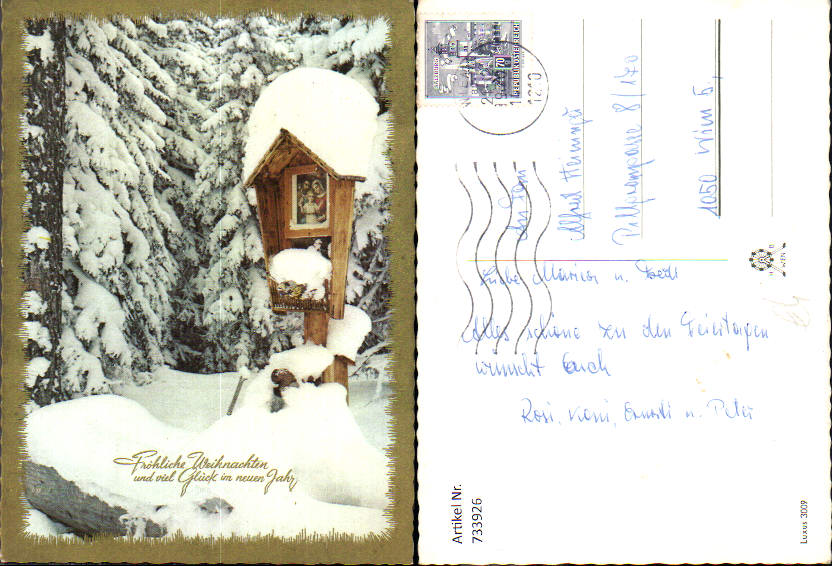 Fröhliche Weihnachten
und viel Glück im neuen Jahr
REPUBLIK ÖSTERREICH
70
1210
An Fam
Alfred
8/170
1050 Wien 5,
Liebe u.
Alles schöne zu den Feiertagen
wünscht Euch
Rosi, u. Peter
Artikel Nr.
733926
Luxus 3009